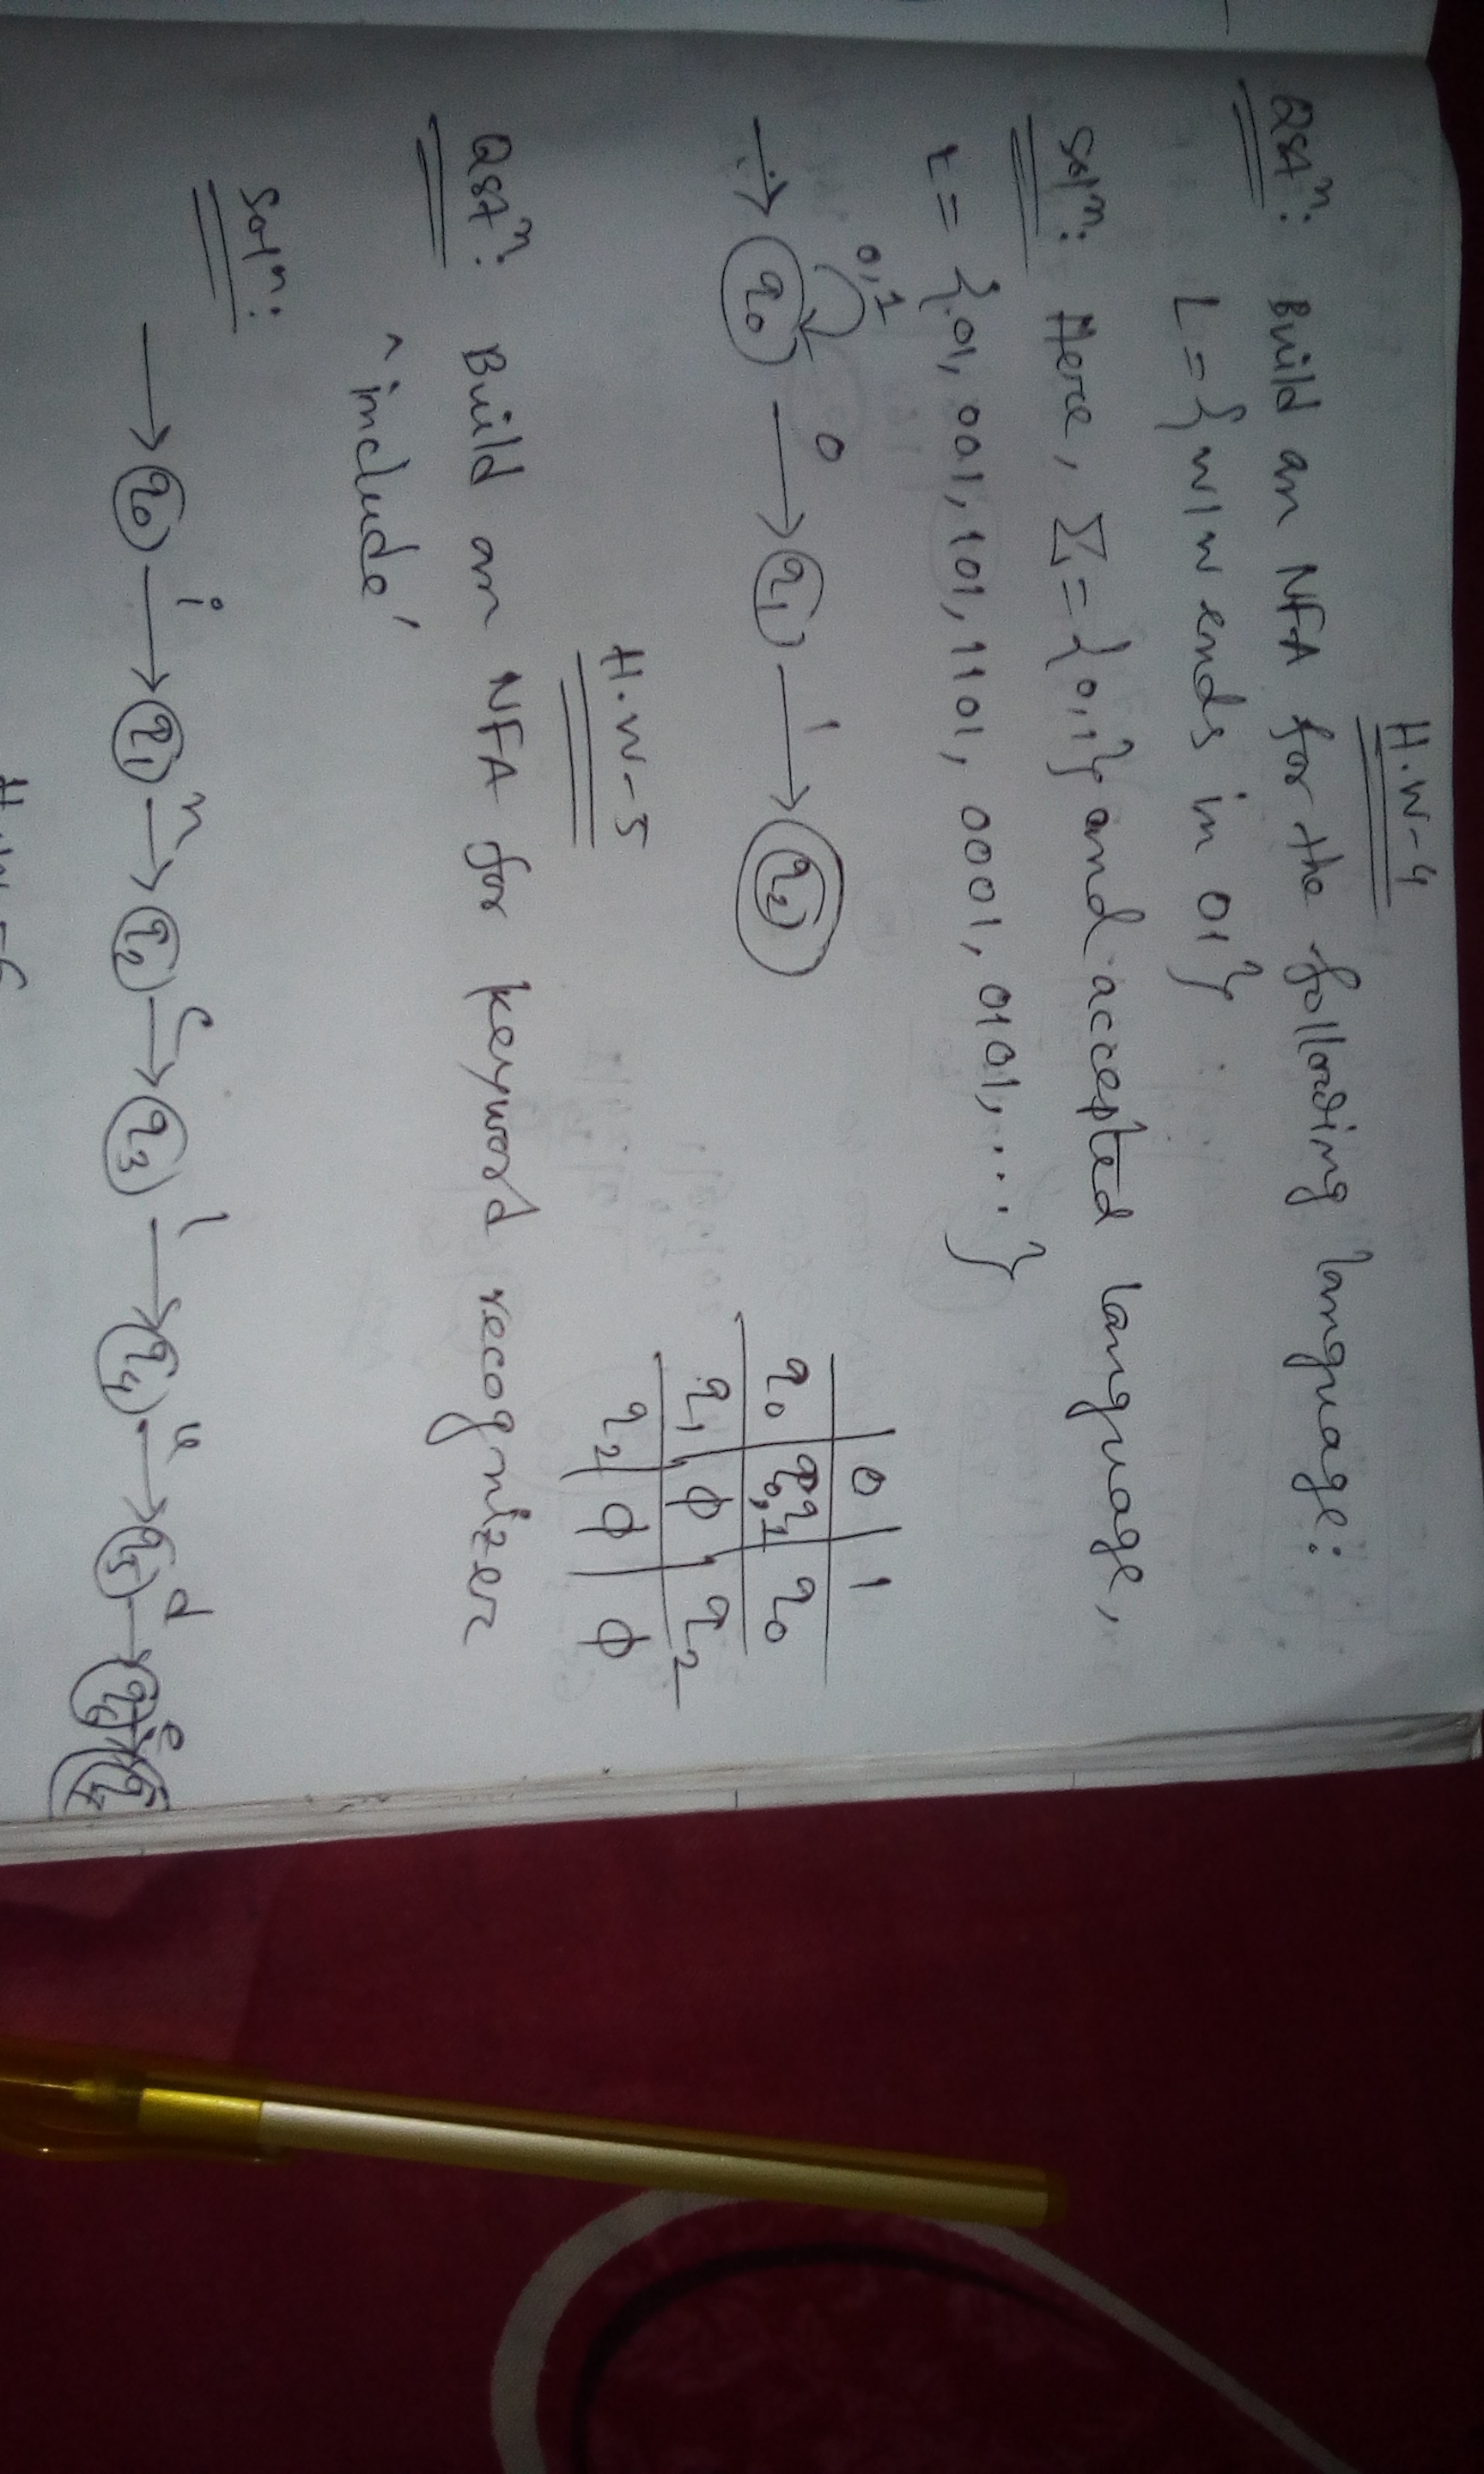 H.W-4
Qstⁿ: Build an NFA for the following language:
L = {w|w ends in 01}
Solⁿ: Here, Σ = {0,1} and accepted language,
L = {01, 001, 101, 1101, 0001, 0101, ...}
0,1
→ q₀ 0 → q₁ 1 → q₂
0 1
q₀ q₀, q₁ q₀
q₁ ϕ q₂
q₂ ϕ ϕ
H.W-5
Qstⁿ: Build an NFA for keyword recognizer
'include'
Solⁿ:
i n c l u d e
→ q₀ → q₁ → q₂ → q₃ → q₄ → q₅ → q₆ → q₇